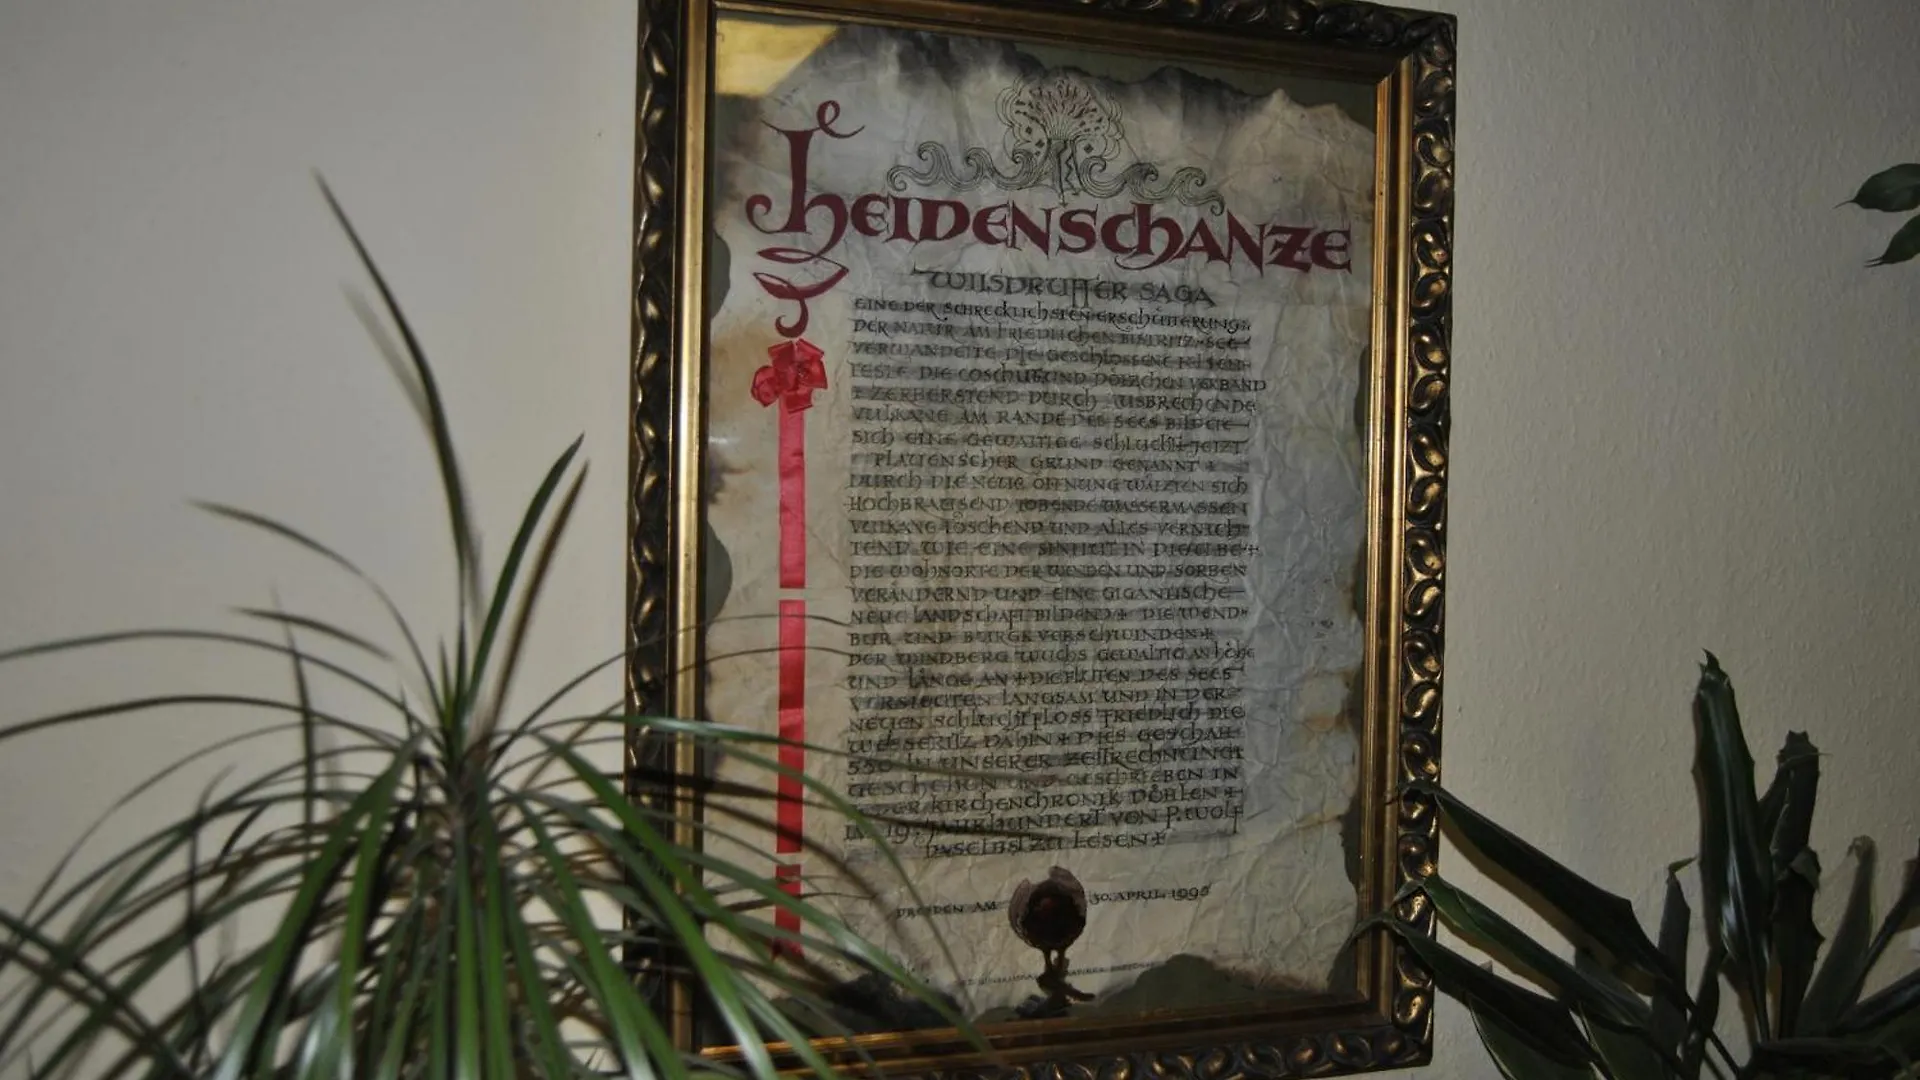 HEIDENSCHANZE
WILSDRUFFER SAGA
EINE DER SCHRECKLICHSTEN ERSCHÜTTERUNG:
DER NATUR AM FRIEDLICHEN BISTRITZ-SEE
VERWANDELTE DIE GESCHLOSSENE
FESTE DIE COSCHUTZ UND DÖLZCHEN VERBAND
+ ZERBERSTEND DURCH AUSBRECHENDE
VULKANE AM RANDE DES SEES BILDETE
SICH EINE GEWALTIGE SCHLUCHT + JETZT
PLAUENSCHER GRUND GENANNT +
DURCH DIE NEUE ÖFFNUNG WÄLZTEN SICH
HOCHBRAUSEND TOBENDE WASSERMASSEN
VULKANE LÖSCHEND UND ALLES VERNICH-
TEND WIE EINE SINTFLUT IN DIE ELBE +
DIE WOHNORTE DER WENDEN UND SORBEN
VERÄNDERND UND EINE GIGANTISCHE
NEUE LANDSCHAFT BILDEND + DIE WEND-
BUR UND BURGK VERSCHWINDEN +
DER WINDBERG WUCHS GEWALTIG AN HÖHE
UND LÄNGE AN + DIE FLUTEN DES SEES
VERSIEGTEN LANGSAM UND IN DER
NEUEN SCHLUCHT FLOSS FRIEDLICH DIE
WEISSERITZ DAHIN + DIES GESCHAH
550 IN UNSERER ZEITRECHNUNG +
GESCHEHEN UND GESCHRIEBEN IN
DER KIRCHENCHRONIK DÖHLEN +
IM 19. JAHRHUNDERT VON P. WOLF
DASELBST ZU LESEN +
DRESDEN AM 30. APRIL 1995